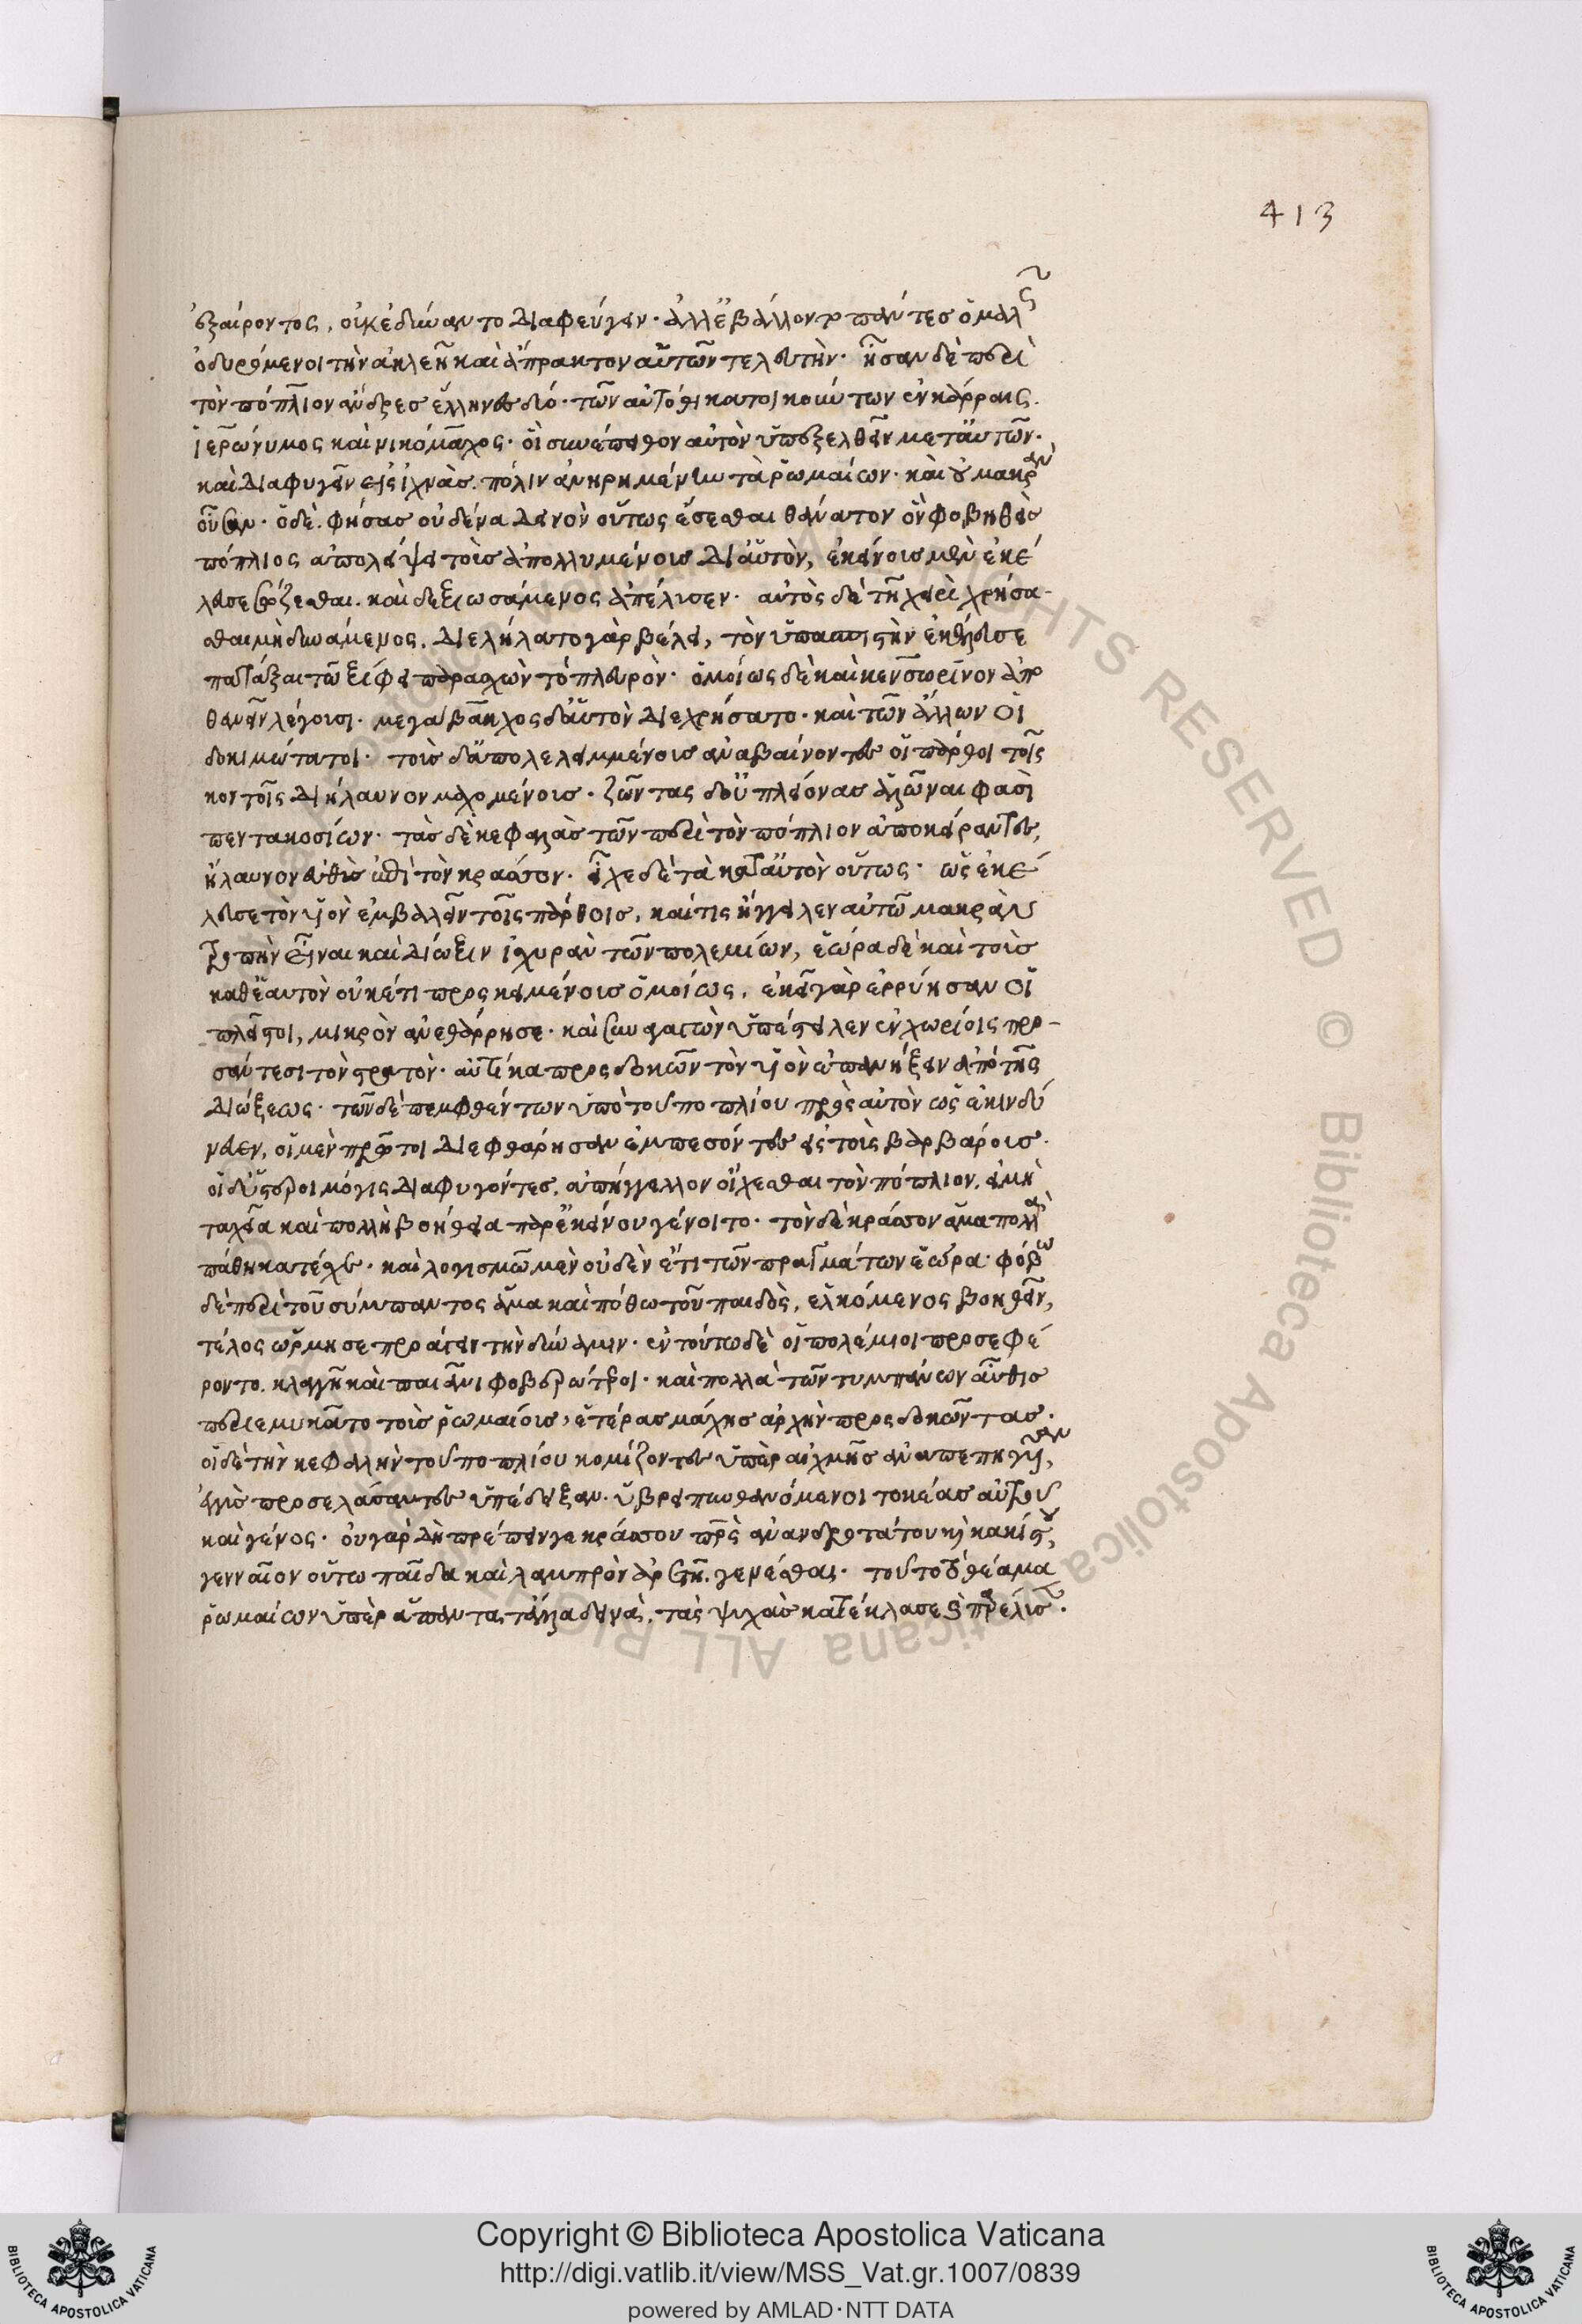 413
ἐξαίροντος, οὐκ ἐδύναντο διαφεύγειν· ἀλλ' ἐβάλλοντο πάντες ὁμαλῶς
ὀδυρόμενοι τὴν ἀκλεῆ καὶ ἄπρακτον αὑτῶν τελευτὴν· ἦσαν δὲ περὶ
τὸν πόπλιον ἄνδρες ἕλληνες δύο· τῶν αὐτόθι κατοικούντων ἐν κάρραις.
ἱερώνυμος καὶ νικόμαχος· οἳ συνέπειθον αὐτὸν ὑπεξελθεῖν μετ' αὐτῶν·
καὶ διαφυγεῖν εἰς ἰχνὰς. πόλιν ἀνῃρημένην τὰ ῥωμαίων· καὶ οὐ μακρὰν
οὖσαν· ὁ δὲ. φήσας οὐδένα δεινὸν οὕτως ἔσεσθαι θάνατον ὃν φοβηθεὶς
πόπλιος ἀπολείψει τοὺς ἀπολλυμένους δι' αὐτὸν, ἐκείνους μὲν ἐκέ
λευσε σώζεσθαι. καὶ δεξιωσάμενος ἀπέλυσεν· αὐτὸς δὲ τῆ χειρὶ χρήσα-
σθαι μὴ δυνάμενος, διελήλατο γὰρ βέλει, τὸν ὑπασπιστὴν ἐκέλευσε
πατάξαι τῶ ξίφει παρασχὼν τὸ πλευρὸν· ὁμοίως δὲ καὶ κενσωρῖνον ἀπο
θανεῖν λέγουσι· μεγάβακχος δ' αὑτὸν διεχρήσατο· καὶ τῶν ἄλλων οἱ
δοκιμώτατοι· τοὺς δ' ὑπολελειμμένους ἀναβαίνοντες οἱ πάρθοι τοῖς
κοντοῖς διήλαυνον μαχομένους· ζῶντας δ' οὐ πλείονας ἁλῶναι φασὶ
πεντακοσίων· τὰς δὲ κεφαλὰς τῶν περὶ τὸν πόπλιον ἀποκείραντες,
ἤλαυνον εὐθὺς ἐπὶ τὸν κράσσον· εἶχε δὲ τὰ κατ' αὐτὸν οὕτως· ὡς ἐκέ
λευσε τὸν υἱὸν ἐμβαλεῖν τοῖς πάρθοις, καί τις ἤγγειλεν αὐτῶ μακρὰν
τροπὴν εἶναι καὶ δίωξιν ἰσχυρὰν τῶν πολεμίων, ἑώρα δὲ καὶ τοὺς
καθ' ἑαυτὸν οὐκέτι προσκειμένους ὁμοίως. ἐκεῖ γὰρ ἐρρύησαν οἱ
πλεῖστοι, μικρὸν ἀνεθάρρησε· καὶ συναγαγὼν ὑπέστειλεν ἐν χωρίοις προ-
σάντεσι τὸν στρατὸν· αὐτίκα προσδοκῶν τὸν υἱὸν ἐπανήξειν ἀπὸ τῆς
διώξεως· τῶν δὲ πεμφθέντων ὑπὸ τοῦ ποπλίου πρὸς αὐτὸν ὡς ἐκινδύ
νευεν, οἱ μὲν πρῶτοι διεφθάρησαν ἐμπεσόντες εἰς τοὺς βαρβάρους·
οἱ δ' ὕστεροι μόγις διαφυγόντες, ἀπήγγελλον οἴχεσθαι τὸν πόπλιον, εἰ μὴ
ταχεῖα καὶ πολλὴ βοήθεια παρ' ἐκείνου γένοιτο· τὸν δὲ κράσσον ἅμα πολλὰ
πάθη κατέσχε· καὶ λογισμῶ μὲν οὐδὲν ἔτι τῶν πραγμάτων ἑώρα· φόβω
δὲ περὶ τοῦ σύμπαντος ἅμα καὶ πόθω τοῦ παιδὸς, ἑλκόμενος βοηθεῖν,
τέλος ὥρμησε προάγειν τὴν δύναμιν· ἐν τούτω δὲ οἱ πολέμιοι προσεφέ
ροντο. κλαγγῆ καὶ παιᾶνι φοβερώτεροι· καὶ πολλὰ τῶν τυμπάνων αὖθις
περιεμυκᾶτο τοὺς ῥωμαίους, ἑτέρας μάχης ἀρχὴν προσδοκῶντας·
οἱ δὲ τὴν κεφαλὴν τοῦ ποπλίου κομίζοντες ὑπὲρ αἰχμῆς ἀναπεπηγυῖαν,
ἐγγὺς προσελάσαντες ὑπέδειξαν· ὕβρει πυνθανόμενοι τοκέας αὐτοῦ
καὶ γένος· οὐ γὰρ δὴ πρέπειν γε κράσσου πατρὸς ἀνανδροτάτου καὶ κακίστου,
γενναῖον οὕτω παῖδα καὶ λαμπρὸν ἀρετῆ. γενέσθαι· τοῦτο τὸ θέαμα
ῥωμαίων ὑπὲρ ἅπαντα τἄλλα δεινὰ, τὰς ψυχὰς κατέκλασε καὶ παρέλυσε·
Copyright © Biblioteca Apostolica Vaticana
http://digi.vatlib.it/view/MSS_Vat.gr.1007/0839
powered by AMLAD·NTT DATA